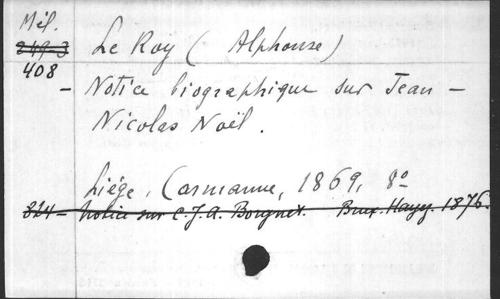 Mél.
249-3
408
Le Roy (Alphonse)
- Notice biographique sur Jean-
Nicolas Noël.
Liége, Carmanne, 1869, 8°
824 - Notice sur C.J.A. Borgnet. Brux. Hayez. 1876.